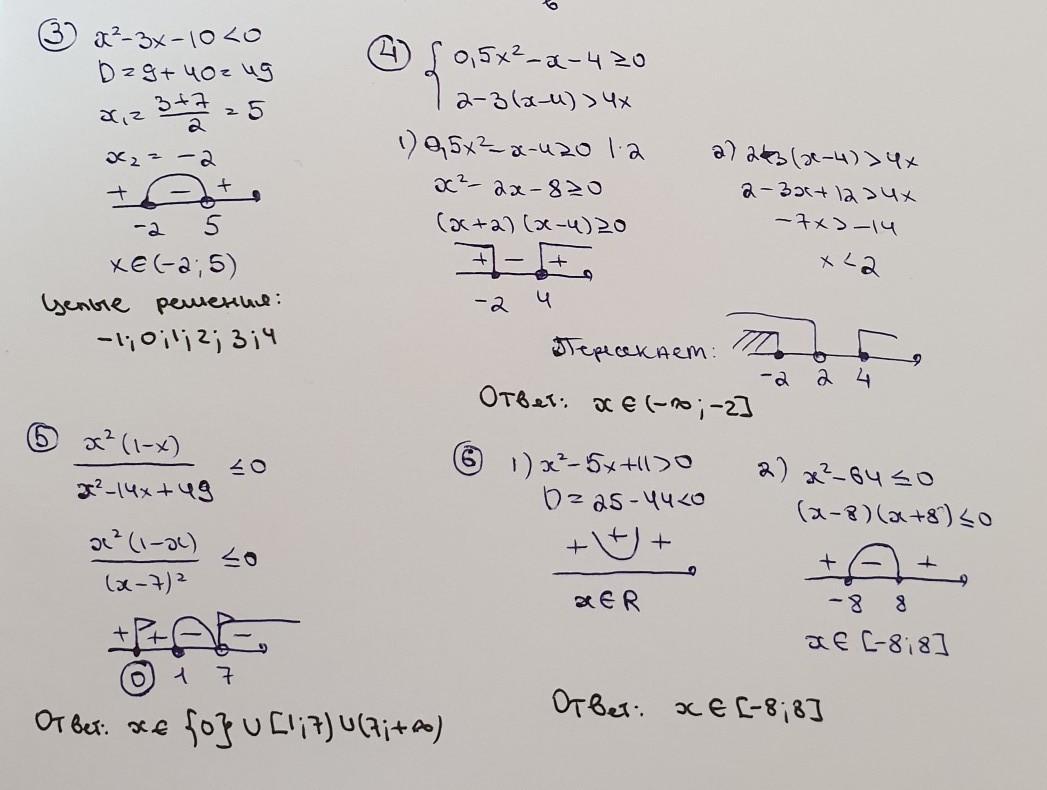 ③ x²-3x-10<0
D=9+40=49
x₁=\frac{3+7}{2}=5
x₂=-2
+ - +
-2 5
x∈(-2;5)
Целые решение:
-1;0;1;2;3;4
④ { 0,5x²-x-4≥0
2-3(x-4)>4x
1) 0,5x²-x-4≥0 |·2
x²-2x-8≥0
(x+2)(x-4)≥0
+ - +
-2 4
2) 2-3(x-4)>4x
2-3x+12>4x
-7x>-14
x<2
-2 2 4
Ответ: x∈(-∞;-2]
⑤ \frac{x²(1-x)}{x²-14x+49} ≤0
\frac{x²(1-x)}{(x-7)²} ≤0
+ + - -
0 1 7
Ответ: x∈{0}∪[1;7)∪(7;+∞)
⑥ 1) x²-5x+11>0
D=25-44<0
+ + +
x∈R
2) x²-64≤0
(x-8)(x+8)≤0
+ - +
-8 8
x∈[-8;8]
Ответ: x∈[-8;8]